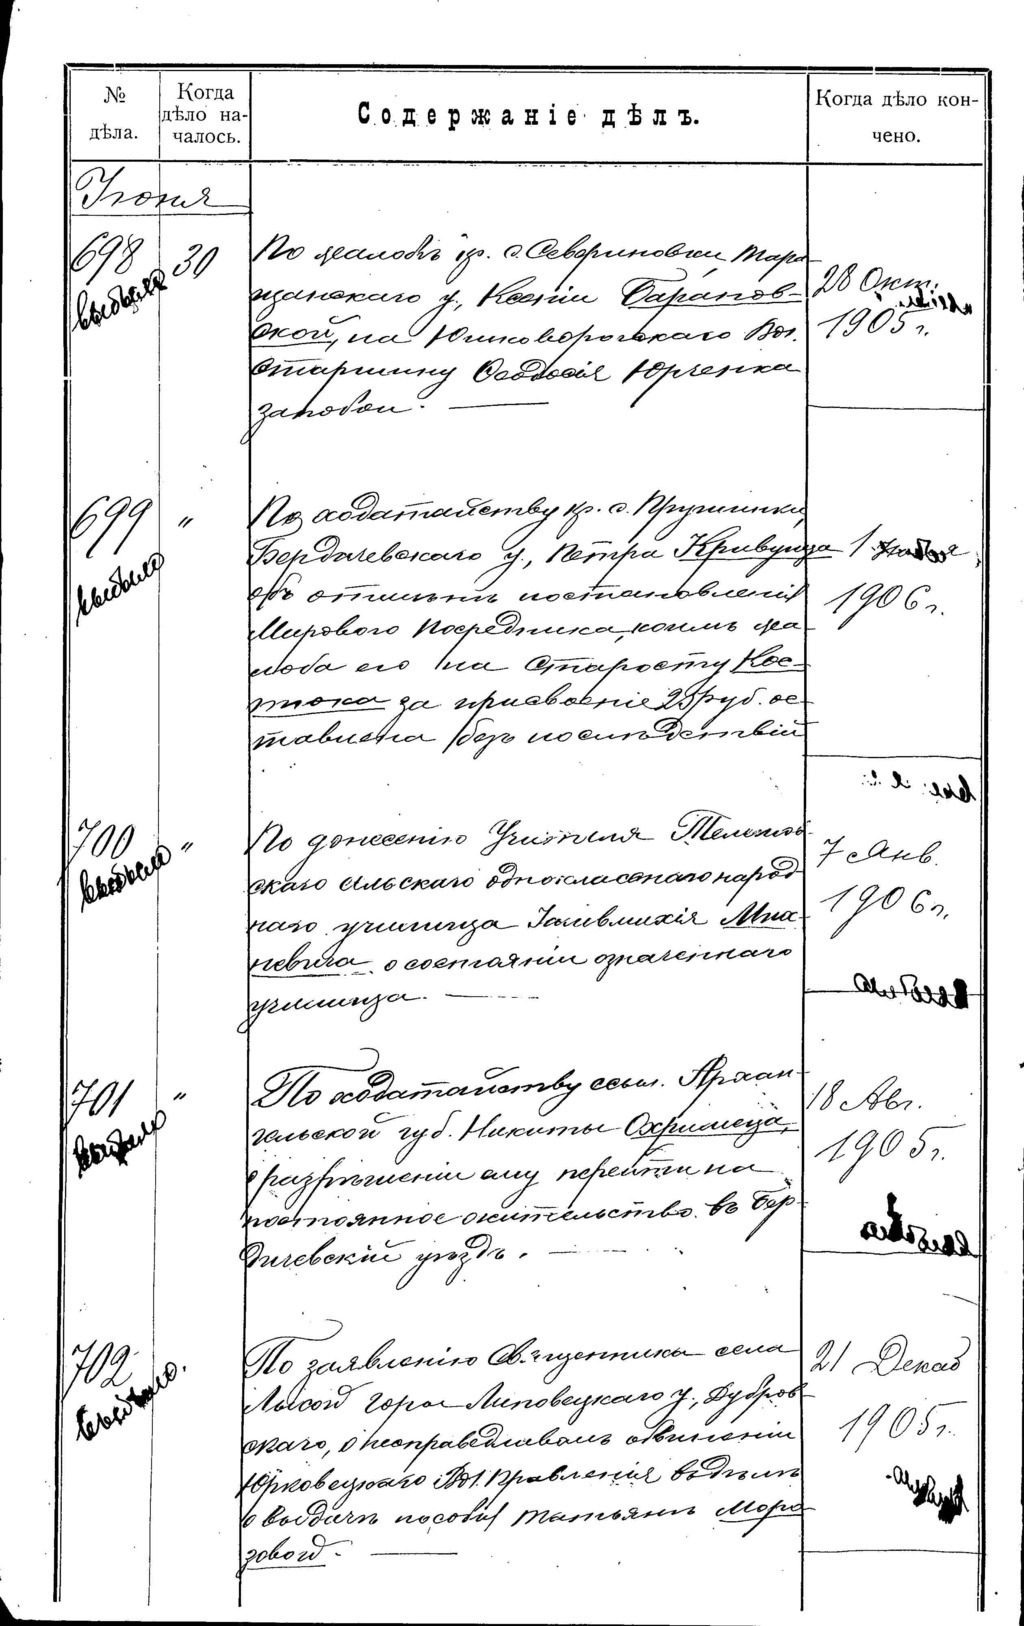 № дѣла.
Когда дѣло началось.
Содержаніе дѣлъ.
Когда дѣло кончено.
Іюня
698
выбыло
30
По жалобѣ кр. с. Севериновки, Тара-
щанскаго у., Ксеніи Баранов-
ской, на Юшковорогскаго Вол.
Старшину Ѳеодосія Юрченка
за побои.
28 Окт.
1905 г.
699
выбыло
"
По ходатайству кр. с.
Бердичевскаго у., Петра Кривуцца
объ отмѣнѣ постановленія
Мирового Посредника, коимъ жа-
лоба его на Старосту Кос-
тюка за присвоеніе 25 руб. ос-
тавлена безъ послѣдствій
1
1906 г.
700
выбыло
"
По донесенію Учителя
скаго сельскаго однокласснаго народ-
наго училища
невича о состояніи означеннаго
училища.
7 Янв.
1906 г.
выбыло
701
выбыло
"
По ходатайству ссыл. Архан-
гельской губ. Никиты Охримеца,
о разрѣшеніи ему перейти на
постоянное жительство въ Бер-
дичевскій уѣздъ.
18 Авг.
1905 г.
выбыло
702
выбыло.
По заявленію Священника села
Лысой горы Липовецкаго у., Дубров-
скаго, о несправедливомъ обвиненіи
Юрковецкаго Вол. Правленія вдѣлѣ
о выдачѣ пособія Татьянѣ Моро-
зовой.
21 Декаб
1905 г.